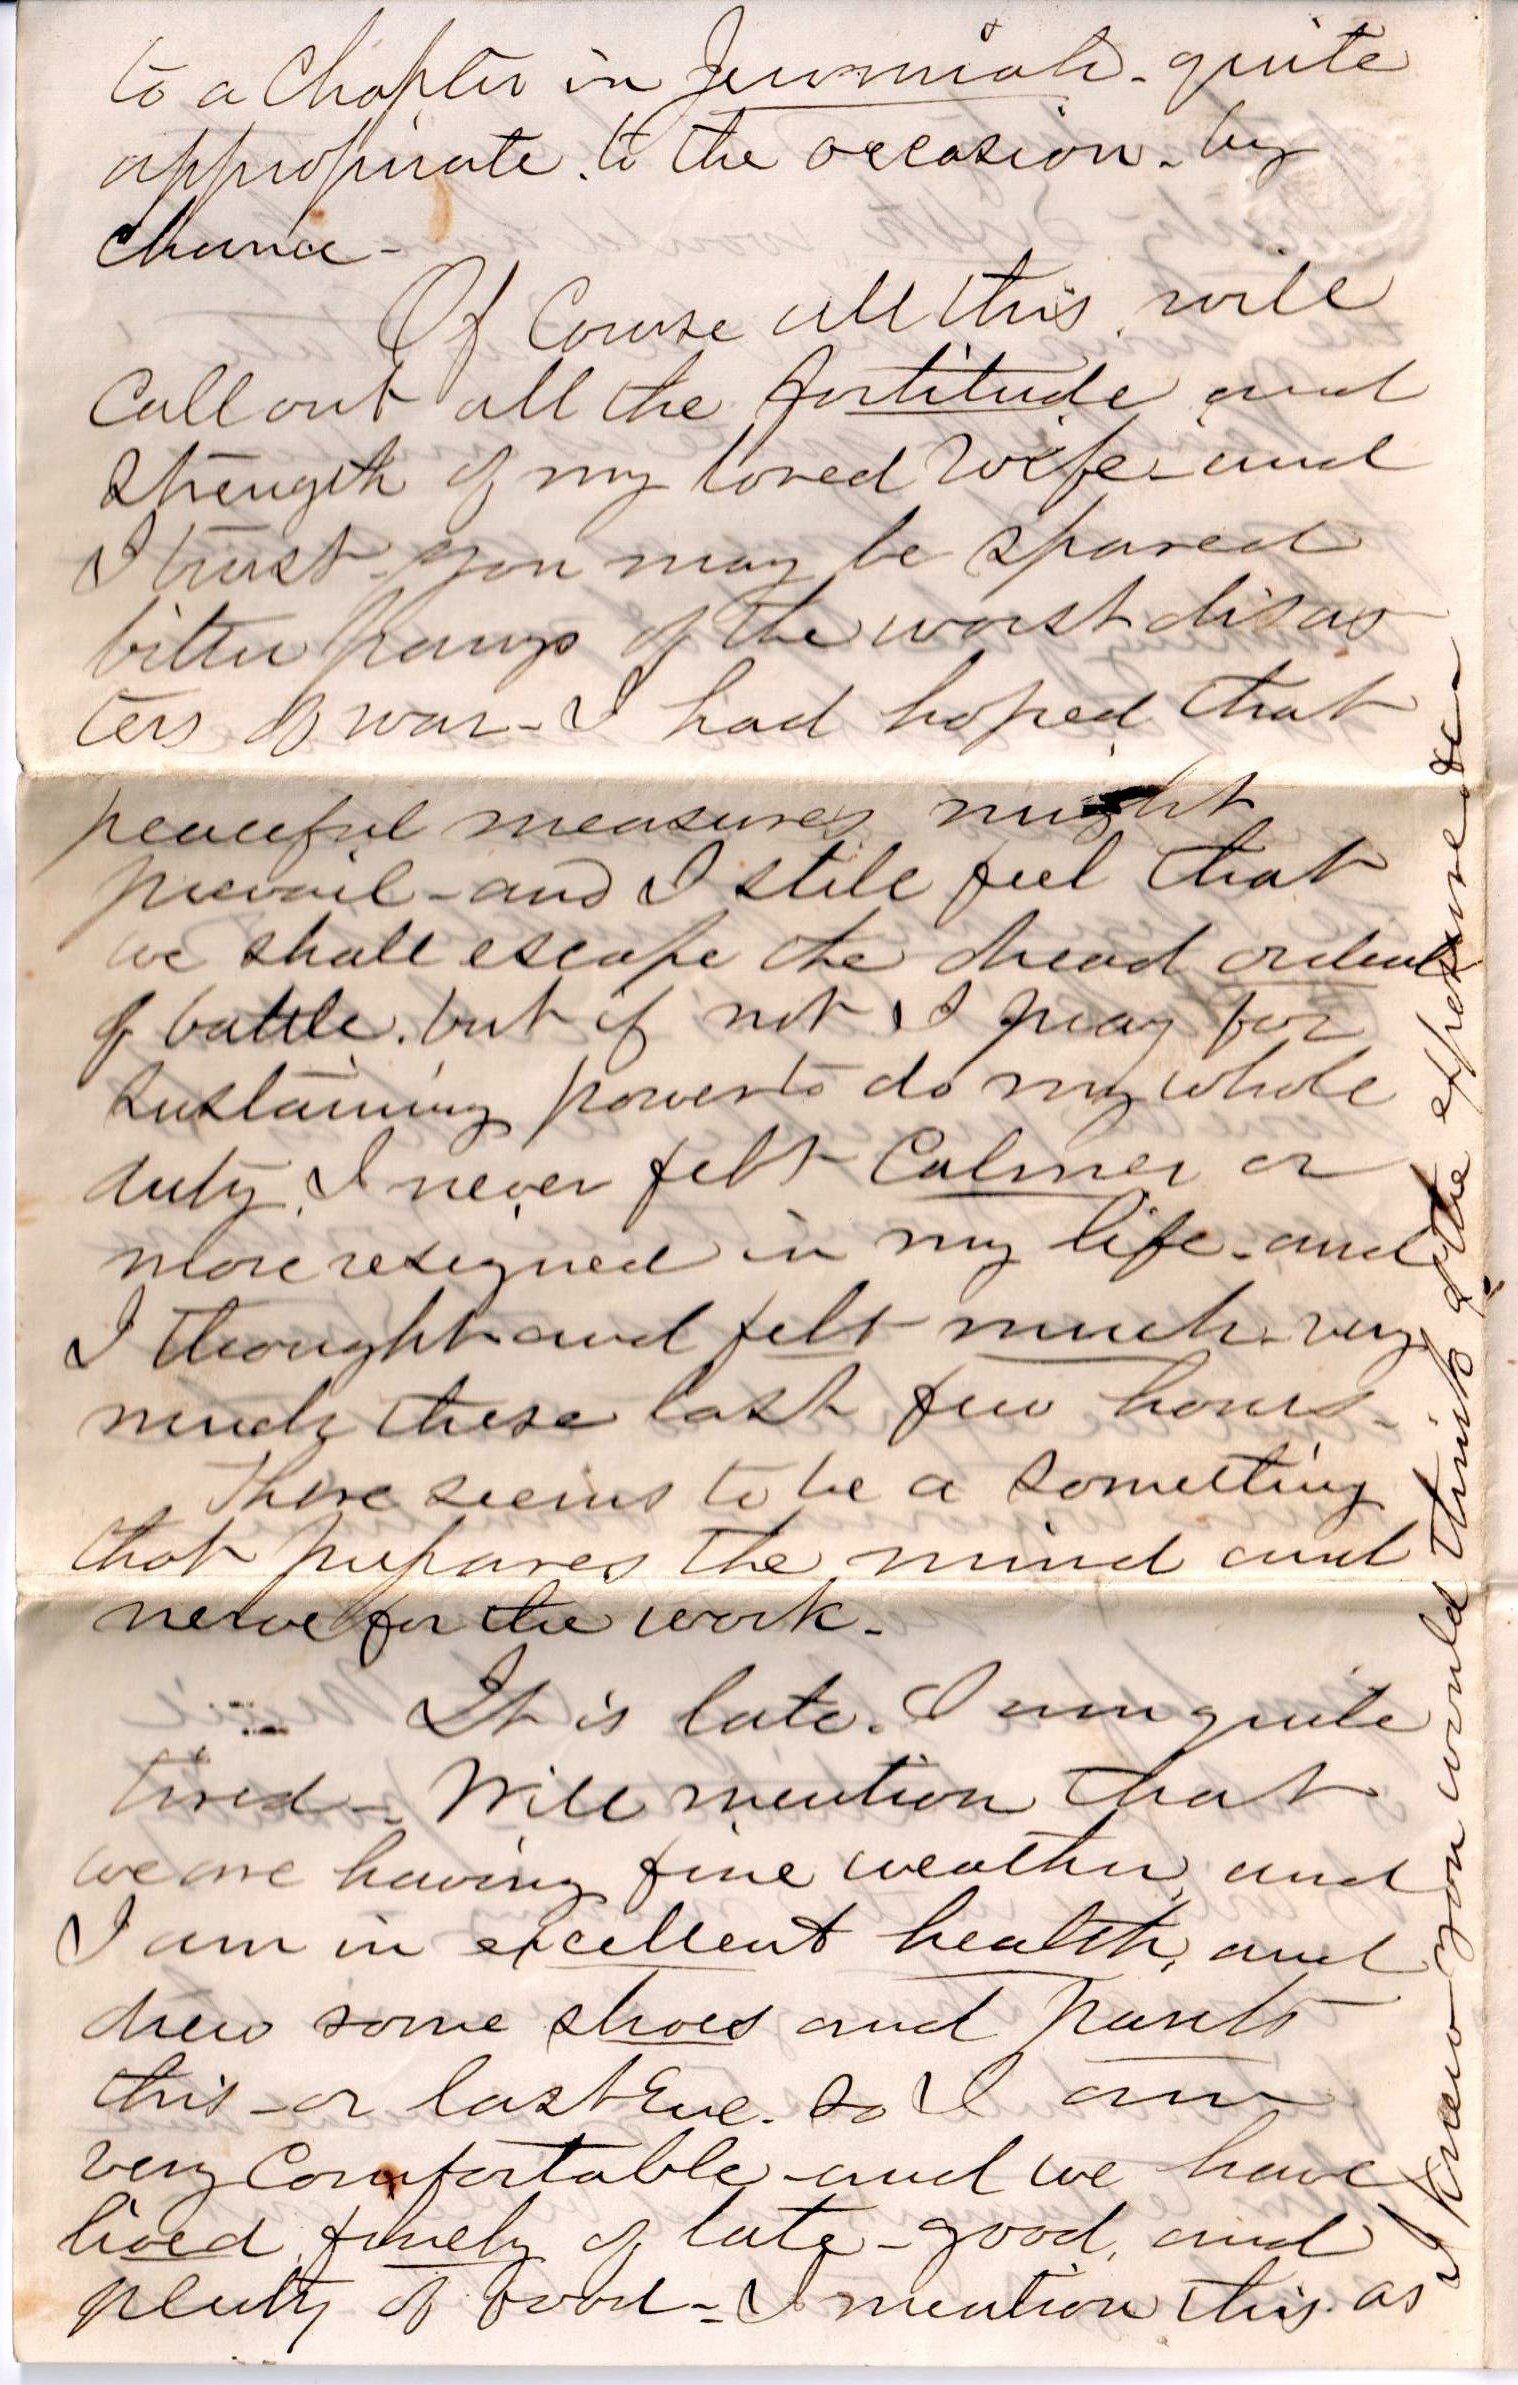 to a Chapter in Jeremiah - quite
appropriate. to the occasion - by
Chance -
Of Course all this will
Call out all the fortitude and
strength of my loved wife - and
I trust you may be spared
bitter pangs of the worst disas
ters of war - I had hoped that
peaceful measures might
prevail - and I still feel that
we shall escape the dread ordeal
of battle. but if not I pray for
sustaining power to do my whole
duty. I never felt Calmer or
more resigned in my life - and
I thought and felt much - very
much these last few hours -
There seems to be a something
that prepares the mind and
nerve for the work -
It is late. I am quite
tired - Will mention that
we are having fine weather, and
I am in excellent health, and
drew some shoes and pants
this - or last Eve. so I am
very Comfortable - and we have
lived finely of late - good, and
plenty of food - I mention this. as
I know you would think of the expensive &c -